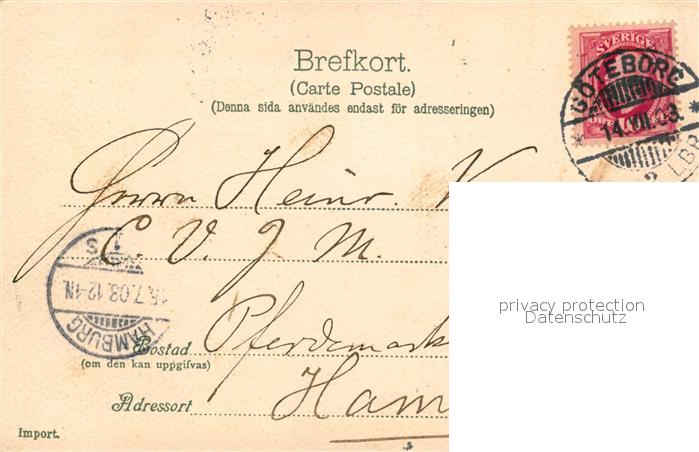 Brefkort.
(Carte Postale)
(Denna sida användes endast för adresseringen)
SVERIGE
GÖTEBORG
14.VII.03
L.BR
Herrn Heinr. V
C. V. J. M.
HAMBURG
15.7.03.12-1N.
1 S
privacy protection
Datenschutz
Bostad Pferdemark
(om den kan uppgifvas)
Adressort Ham
Import.